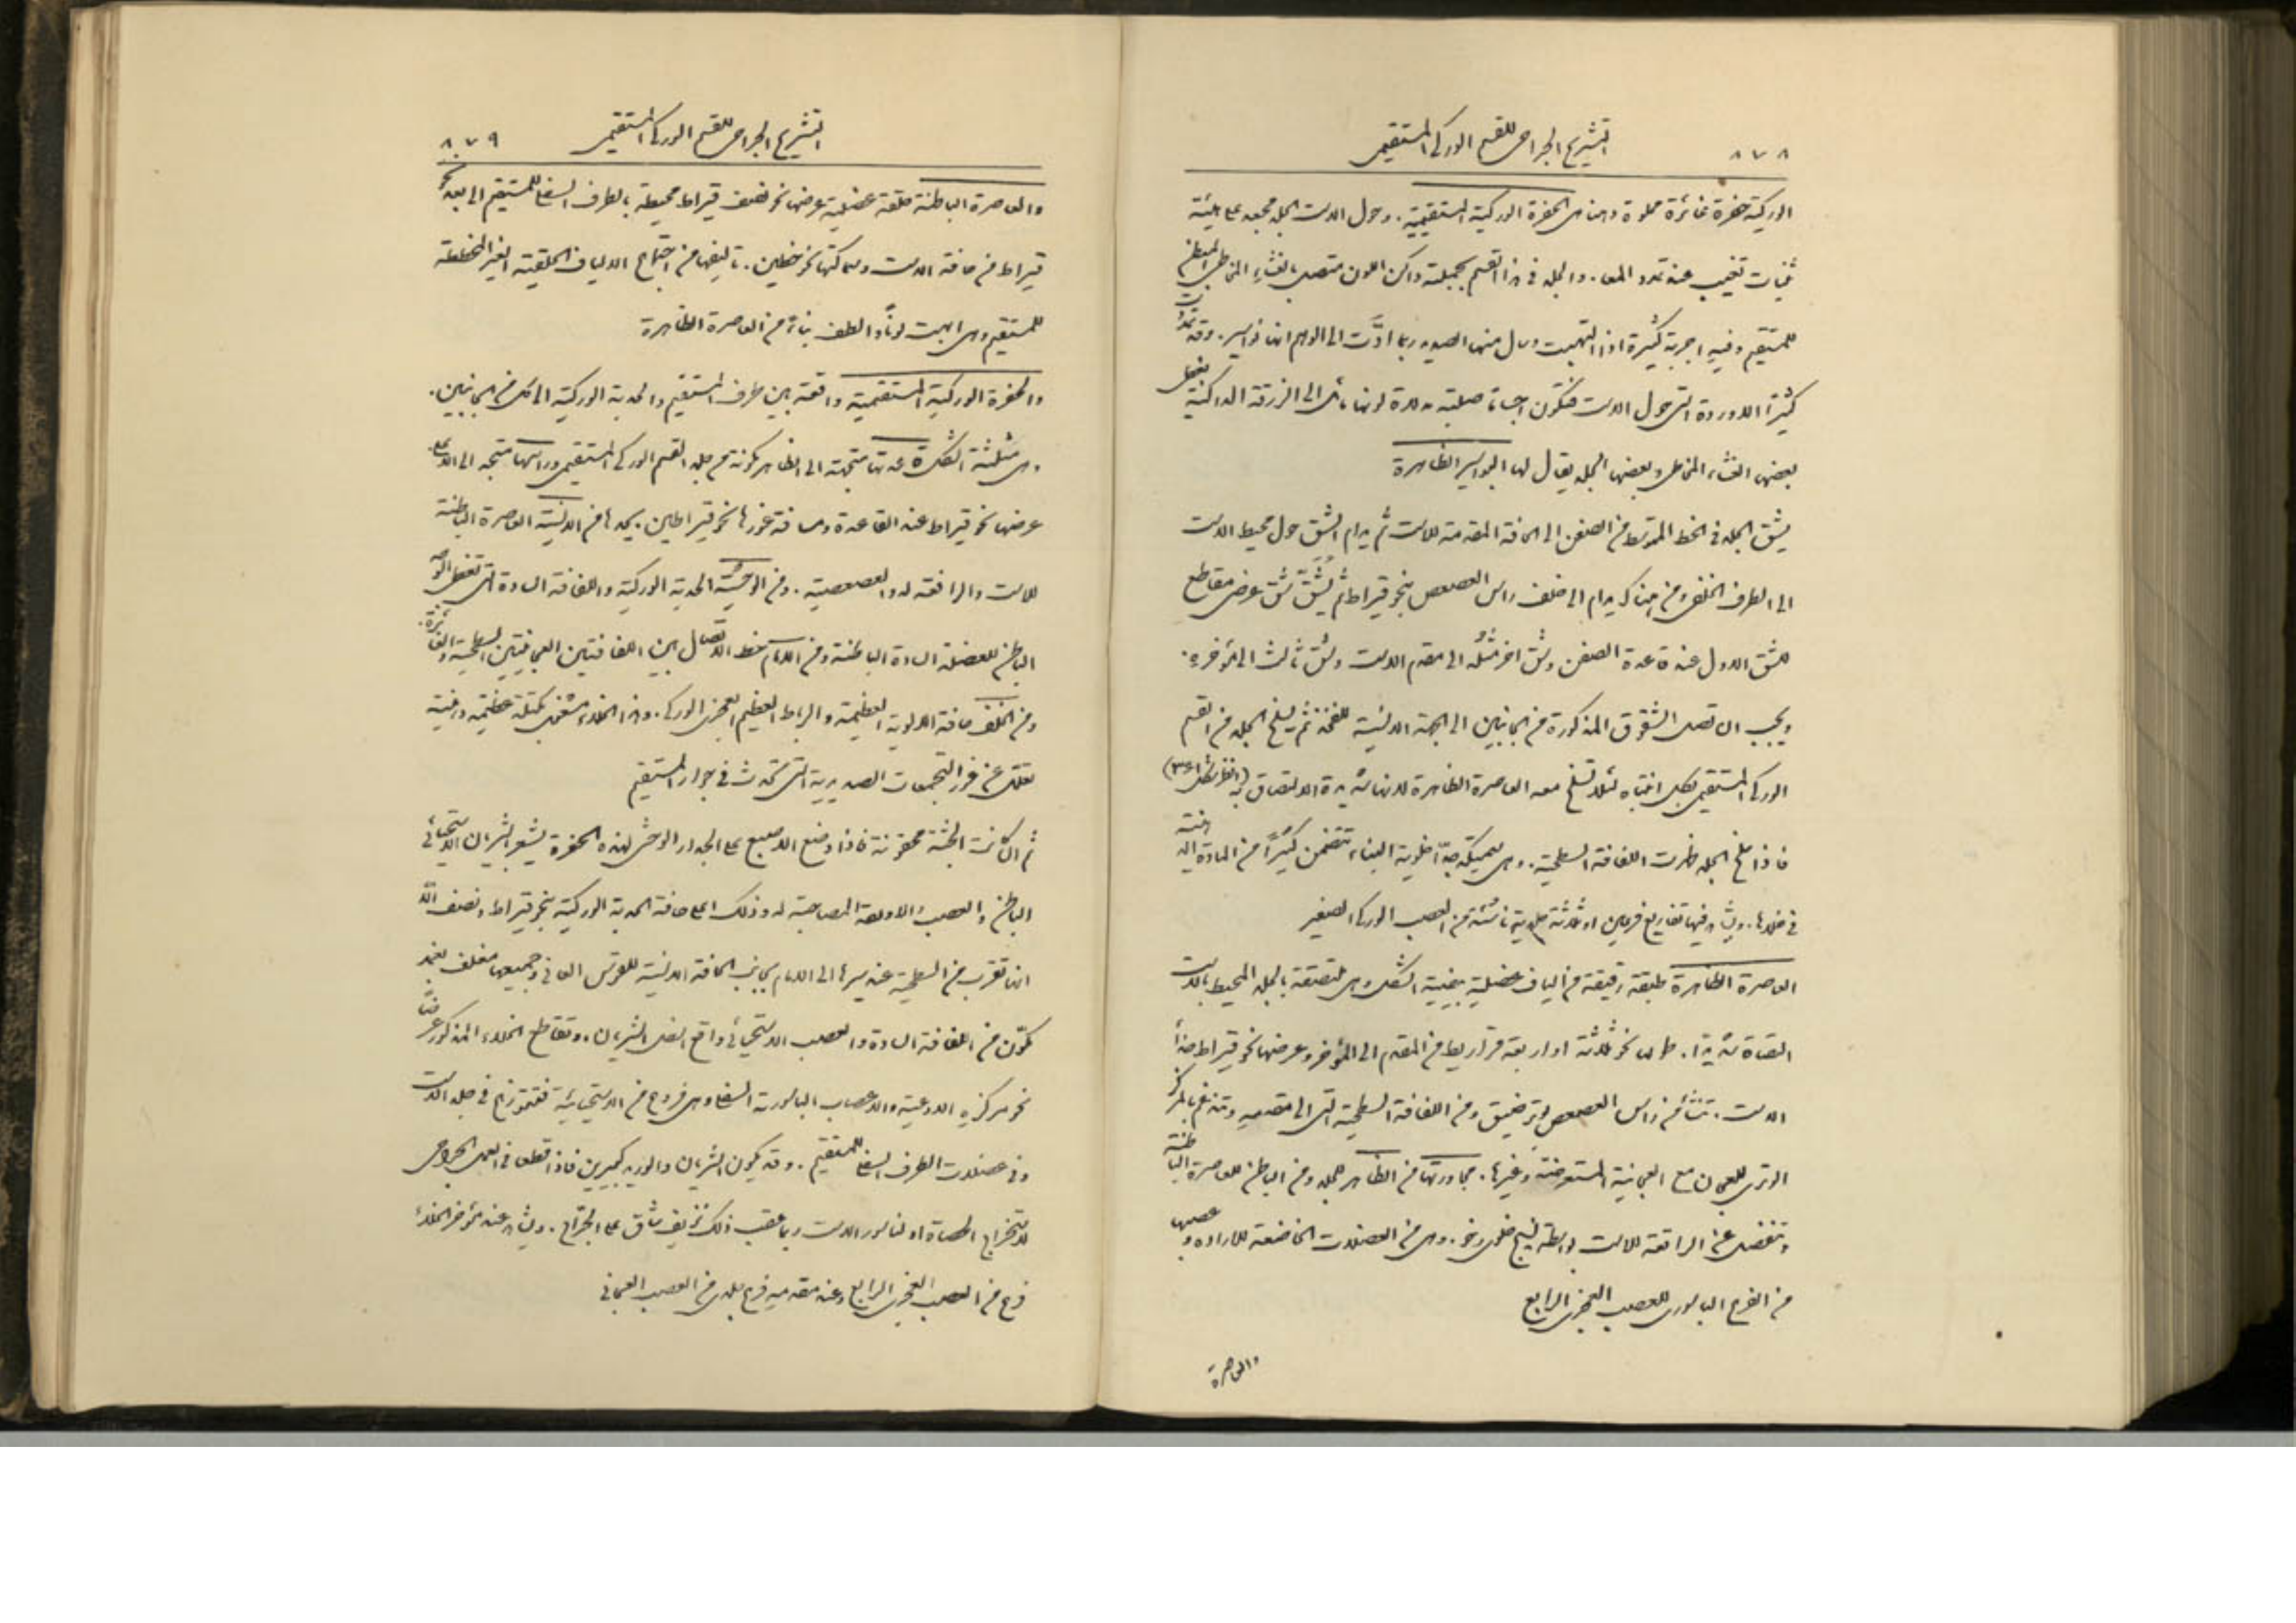 ٨٧٨
التشريح الجراحي للقسم الوركي المستقيمي
الوركية حفرة غائرة مملوة دهنا هي الحفرة الوركية المستقيمية. وحول الاست الجلد مجعد على هيئة
ثنيات تغيب عند تمدد المعا. والجلد في هذا القسم بجملته داكن اللون متصل بالغشاء المخاطي المبطن
للمستقيم وفيه اجربة كثيرة اذا التهبت وسال منها الصديد ربما ادّت الى الوهم انها نواسير. وقد تمدّدت
كثيرًا الاوردة التي حول الاست فتكون اجساما صلبة مدورة لونها مائل الى الزرقة الداكنة يغطي
بعضها الغشاء المخاطي وبعضها الجلد يقال لها البواسير الظاهرة
يشق الجلد في الخط المتوسط من الصفن الى الحافة المقدمة للاست ثم يدام الشق حول محيط الاست
الى الطرف الخلفي ومن هناك يدام الى خلف راس العصعص بنحو قيراط ثم يُشَقّ شق عرضي مقاطع
للشق الاول عند قاعدة الصفن وشق اخر مثله الى مقدم الاست وشق ثالث الى مؤخره.
ويجب ان تصل الشقوق المذكورة من الجانبين الى الجهة الانسية للفخذ ثم يسلخ الجلد من القسم
الوركي المستقيمي بكل انتباه لئلا تسلخ معه العاصرة الظاهرة لانها شديدة الالتصاق به (انظر شكل ٣٤١)
فاذا سلخ الجلد ظهرت اللفافة السطحية. وهي سميكة جدًّا خلوية البناء تتضمن كثيرًا من المادة الدهنية
في خلالها. ويشاهد فيها تفاريع فرعين او ثلاثة جلدية ناشئة من العصب الوركي الصغير
العاصرة الظاهرة طبقة رقيقة من الياف عضلية بيضية الشكل وهي ملتصقة بالجلد المحيط بالاست
التصاقا شديدا. طولها نحو ثلاثة او اربعة قراريط من المقدم الى المؤخر وعرضها نحو قيراط حذأ
الاست. تنشأ من راس العصعص بوتر ضيق ومن اللفافة السطحية التي الى مقدمه وتندغم بالمركز
الوتري للعجان مع العجانية المستعرضة وغيرها. مجاورتها من الظاهر للجلد ومن الباطن للعاصرة الباطنة
وتنفصل عن الرافعة للاست بواسطة نسيج خلوي رخو. وهي من العضلات الخاضعة للارادة وعصبها
من الفرع الباسوري للعصب العجزي الرابع
والعاصرة
التشريح الجراحي للقسم الوركي المستقيمي
٨٧٩
والعاصرة الباطنة حلقة عضلية عرضها نحو نصف قيراط محيطة بالطرف السفلي للمستقيم الى بعد نحو
قيراط من حافة الاست وسماكتها نحو خطين. تاليفها من اجتماع الالياف الحلقية الغير المخططة
للمستقيم وهي ابهت لونًا والطف بناء من العاصرة الظاهرة
والحفرة الوركية المستقيمية واقعة بين طرف المستقيم والحدبة الوركية الى كل من الجانبين.
وهي مثلثة الشكل قاعدتها متجهة الى الظاهر مكونة من جلد القسم الوركي المستقيمي وراسها متجه الى الاعلى.
عرضها نحو قيراط عند القاعدة ومسافة غورها نحو قيراطين. يحدها من الانسية العاصرة الباطنة
للاست والرافعة له والعصعصية. ومن الوحشية الحدبة الوركية واللفافة السادة التي تغطي الوجه
الباطن للعضلة السادة الباطنة ومن الامام خط الاتصال بين اللفافتين العجانيتين السطحية والغائرة.
ومن الخلف حافة الالوية العظيمة والرباط العظيم العجزي الوركي. وهذا الخلاء مشغول بكتلة عظيمة دهنية
تعلل عن غور التجمعات الصديدية التي تحدث في جوار المستقيم
ثم ان كانت الجثة محقونة فاذا وضع الاصبع على الجدار الوحشي لهذه الحفرة يشعر بالشريان الاستحيائي
الباطن والعصب والاوعية المصاحبة له وذلك اعلى حافة الحدبة الوركية بنحو قيراط ونصف الّا
انها تقرب من السطحية عند سيرها الى الامام بجانب الحافة الانسية للقوس العاني وجميعها مغلف بغمد
مكوّن من اللفافة السادة والعصب الاستحيائي واقع اسفل الشريان. وتقاطع الخلاء المذكور عرضًا
نحو مركزه الاوعية والاعصاب الباسورية السفلى وهي فروع من الاستحيائية فتتوزع في جلد الاست
وفي عضلات الطرف السفلي للمستقيم. وقد يكون الشريان والوريد كبيرين فاذا قطعا في العمل الجراحي
لاستخراج الحصاة او لناسور الاست ربما عقب ذلك نزيف شاق على الجرّاح. ويشاهد عند مؤخر الخلاء
فرع من العصب العجزي الرابع وعند مقدمه فرع جلدي من العصب العجاني